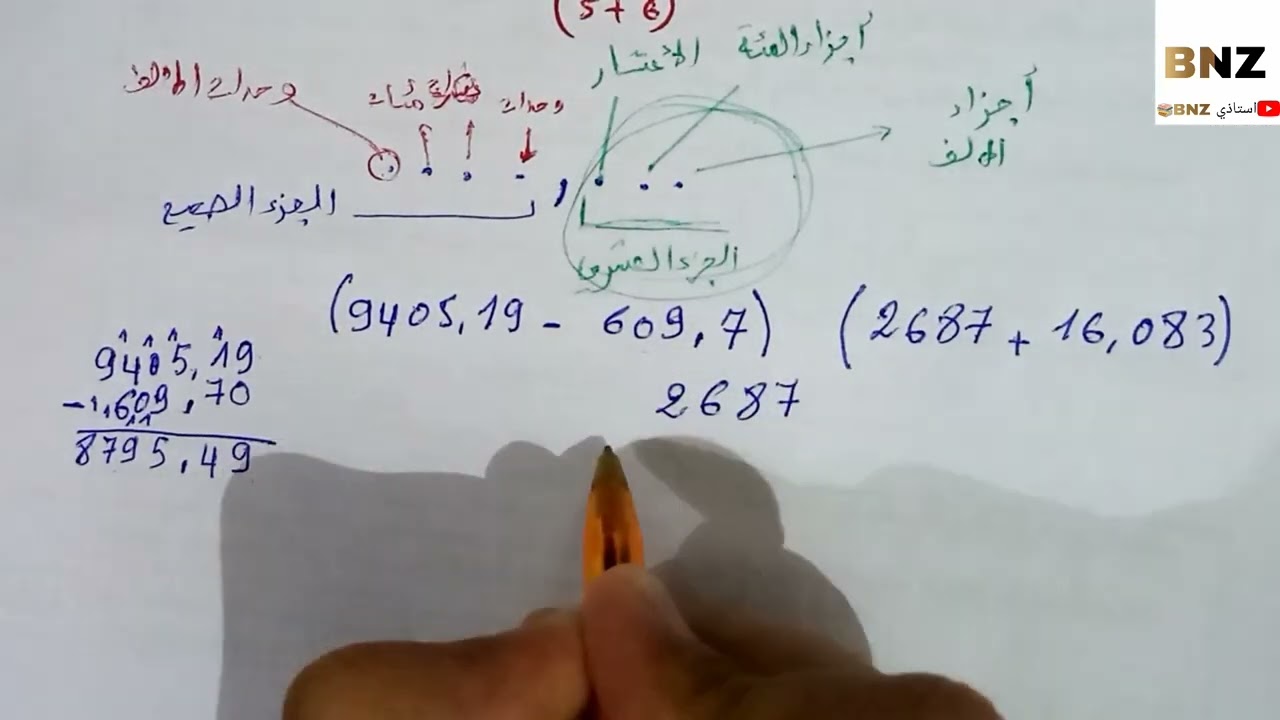 (5+6)
وحدات الالاف
مئات
وحدات
الأعشار
أجزاء المئة
أجزاء
الالف
الجزء الصحيح
,
الجزء العشري
(9405,19 - 609,7) (2687 + 16,083)
2687
9405,19
- 609,70
8795,49
BNZ
استاذي BNZ